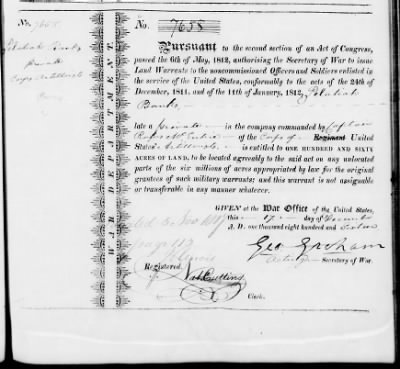 No. 7658
No. 7658
Pelatiah Banks
Private
Corps Artillerists
WAR DEPARTMENT.
Pursuant to the second section of an Act of Congress,
passed the 6th of May, 1812, authorising the Secretary of War to issue
Land Warrants to the noncommissioned Officers and Soldiers enlisted in
the service of the United States, conformably to the acts of the 24th of
December, 1811, and of the 11th of January, 1812, Pelatiah
Banks
late a Private in the company commanded by Captain
of the Corps of Regiment United
States Artillerists is entitled to ONE HUNDRED AND SIXTY
ACRES OF LAND, to be located agreeably to the said act on any unlocated
parts of the six millions of acres appropriated by law for the original
grantees of such military warrants; and this warrant is not assignable
or transferable in any manner whatever.
GIVEN at the War Office of the United States,
this 17 day of December
A. D. one thousand eight hundred and Sixteen
Geo Graham
Secretary of War.
Illinois
Registered.
Nat Cutting
Clerk.